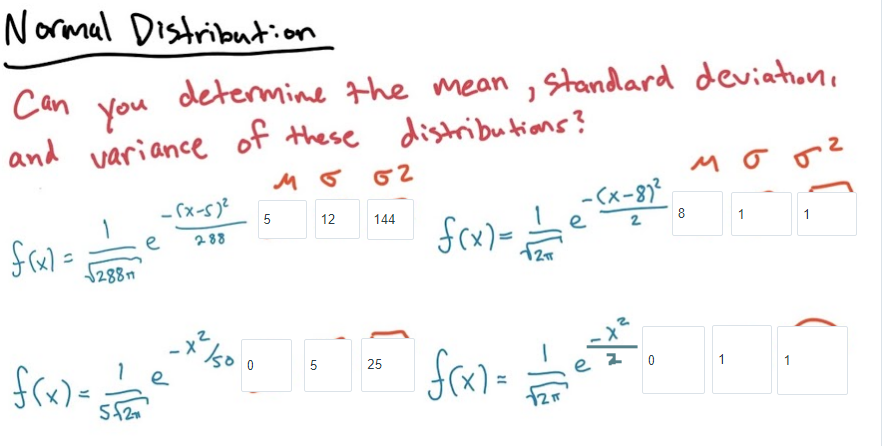 Normal Distribution
Can you determine the mean, standard deviation,
and variance of these distributions?
μ σ σ2
f(x) = 1/√288π e^(-(x-5)²/288) 5 12 144
μ σ σ²
f(x) = 1/√2π e^(-(x-8)²/2) 8 1 1
f(x) = 1/5√2π e^(-x²/50) 0 5 25
f(x) = 1/√2π e^(-x²/2) 0 1 1